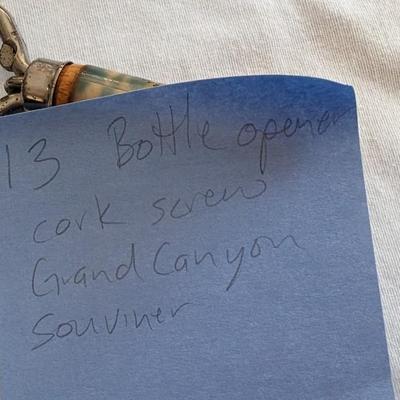 13 Bottle opener
cork screw
Grand Canyon
souviner